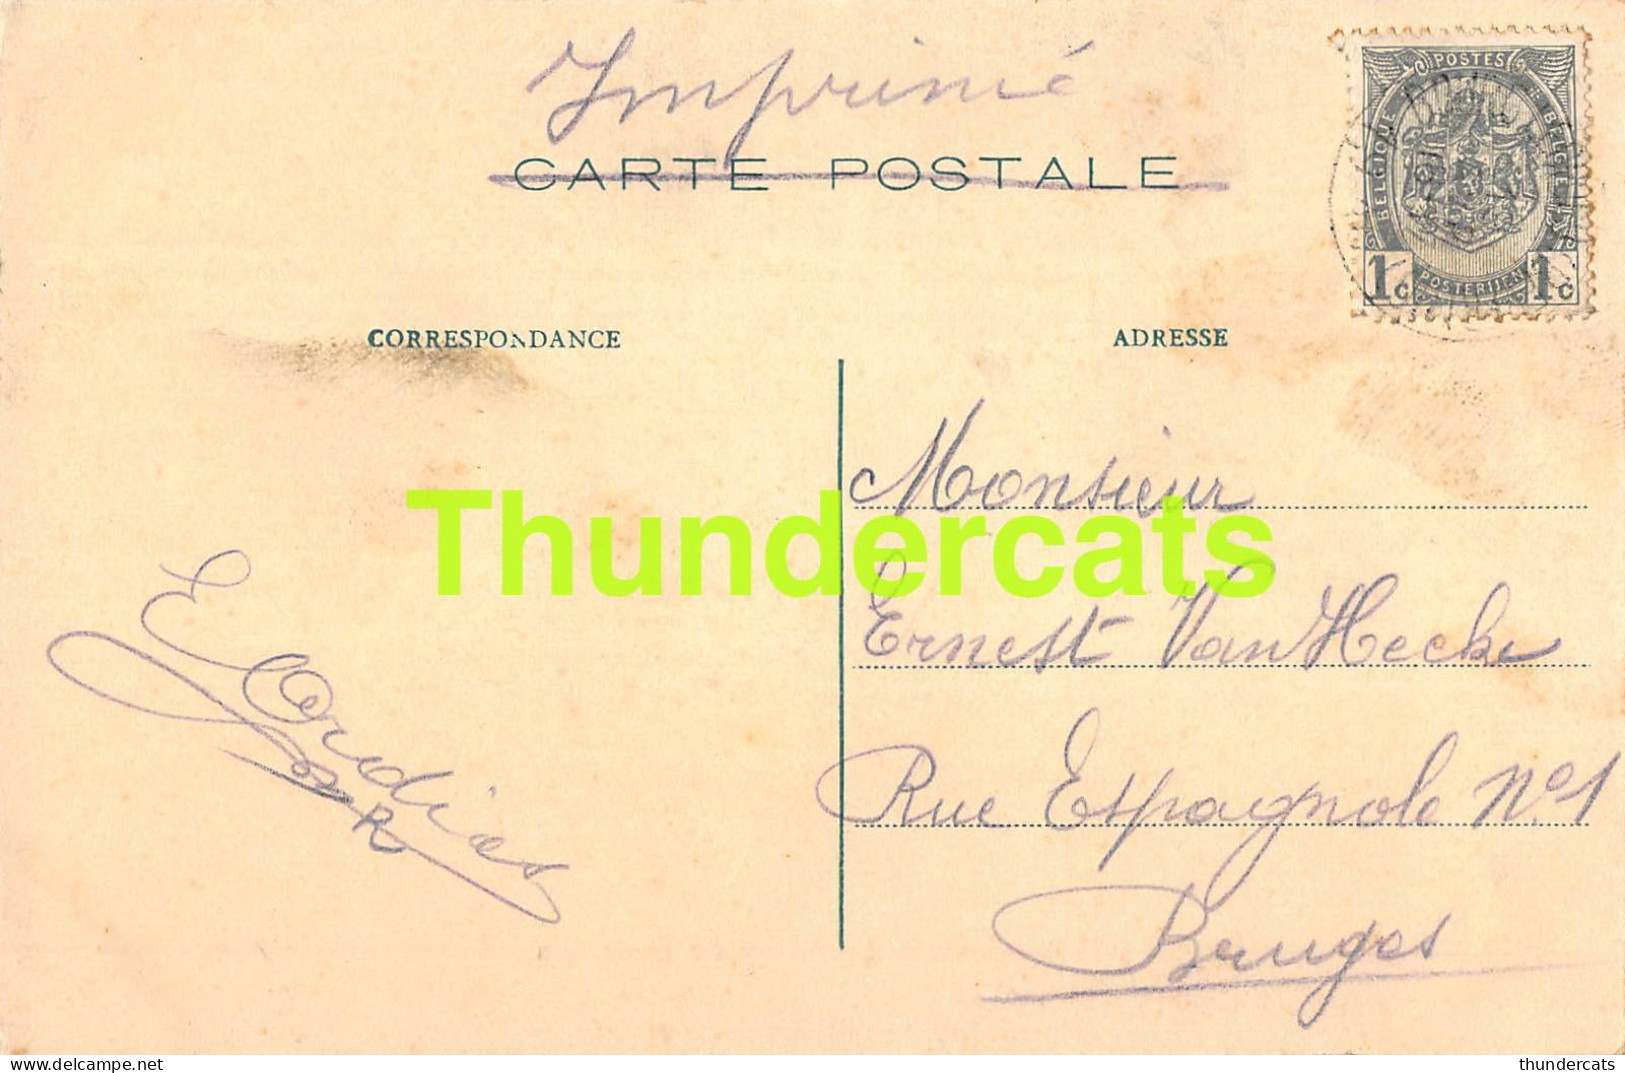 Imprimé
CARTE POSTALE
POSTES
BELGIQUE
BELGIË
1c
POSTERIJEN
1c
CORRESPONDANCE
ADRESSE
Monsieur
Thundercats
Ernest Van Hecke
Rue Espagnole No 1
Bruges
www.delcampe.net
thundercats